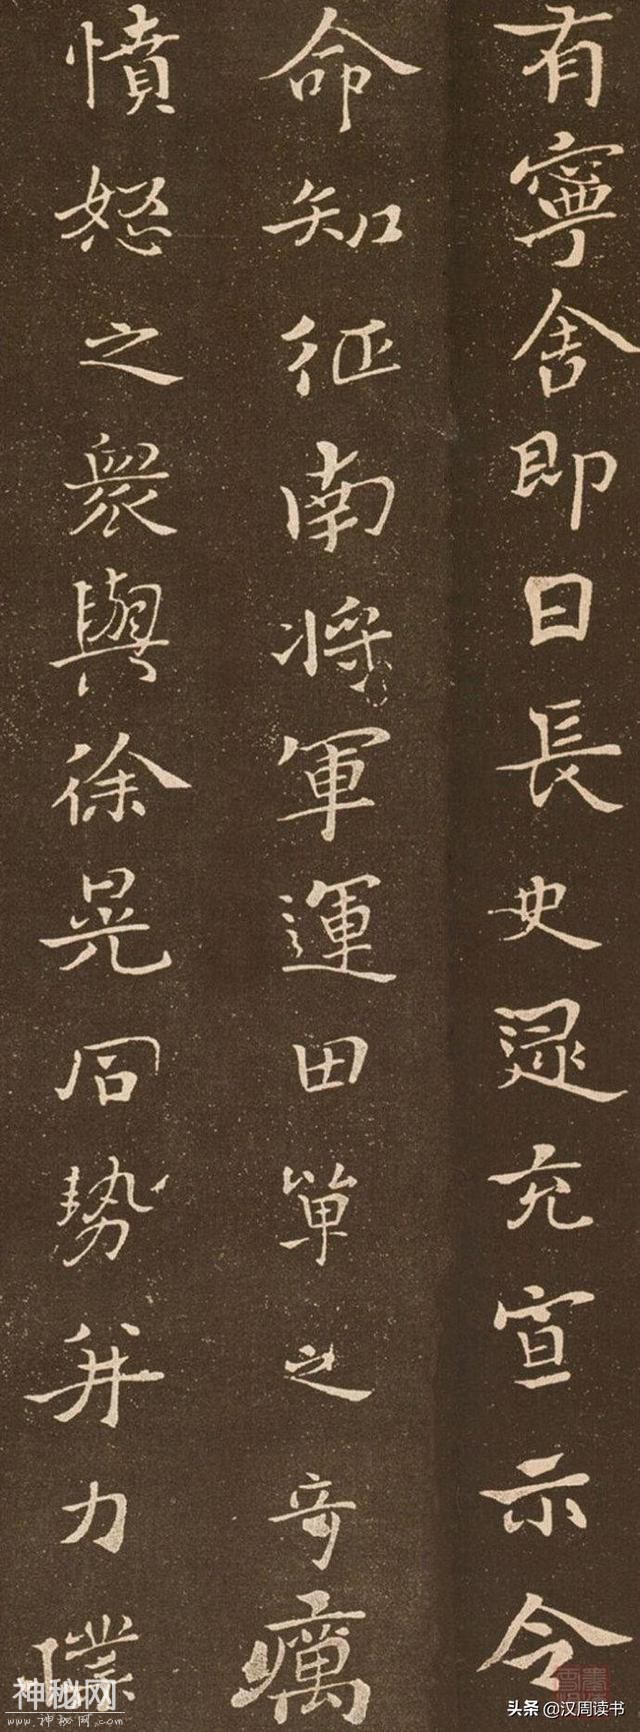 有寧舍即日長史逯充宣示令
命知征南將軍運田單之奇厲
憤怒之眾與徐晃同勢并力撲
神秘网
www.神秘网.com
头条 @汉周读书